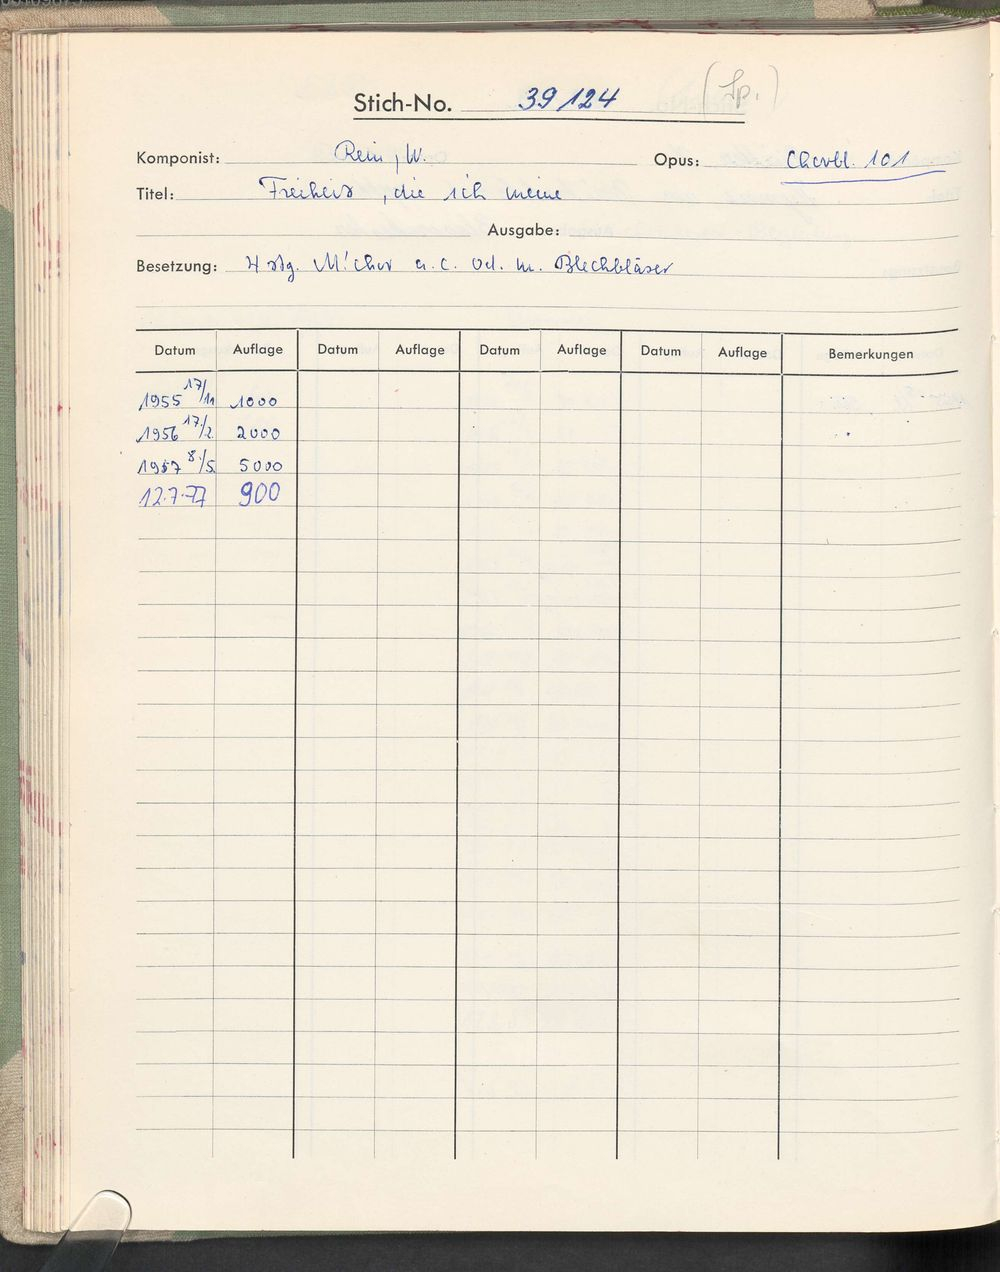 Stich-No. 39124 (Sp.)
Komponist: Rein, W. Opus: Chorbl. 101
Titel: Freiheit, die ich meine
Ausgabe:
Besetzung: 4 stg. M'chor a.c. od. m. Blechbläser
Datum Auflage Datum Auflage Datum Auflage Datum Auflage Bemerkungen
1955 17/11 1000
1956 17./2. 2000
1957 8./5. 5000
12.7.77 900